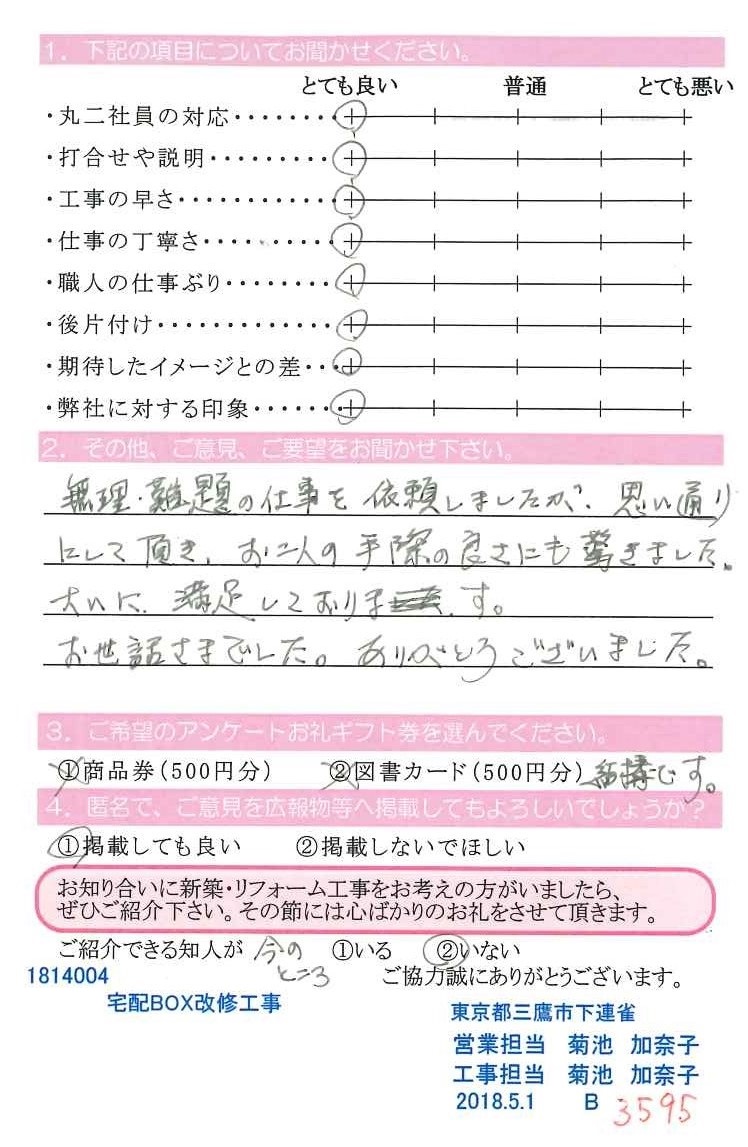 1. 下記の項目についてお聞かせください。
とても良い 普通 とても悪い
・丸二社員の対応・・・・・・・・
・打合せや説明・・・・・・・・・
・工事の早さ・・・・・・・・・・・・
・仕事の丁寧さ・・・・・・・・・
・職人の仕事ぶり・・・・・・・・
・後片付け・・・・・・・・・・・・・
・期待したイメージとの差・・・
・弊社に対する印象・・・・・・
2. その他、ご意見、ご要望をお聞かせ下さい。
無理・難題の仕事を依頼しましたが、思い通り
にして頂き、お二人の手際の良さにも驚きました。
大いに満足しております。
お世話さまでした。ありがとうございました。
3. ご希望のアンケートお礼ギフト券を選んでください。
①商品券(500円分) ②図書カード(500円分) 結構です。
4. 匿名で、ご意見を広報物等へ掲載してもよろしいでしょうか?
①掲載しても良い ②掲載しないでほしい
お知り合いに新築・リフォーム工事をお考えの方がいましたら、
ぜひご紹介下さい。その節には心ばかりのお礼をさせて頂きます。
ご紹介できる知人が 今のところ ①いる ②いない
1814004 ご協力誠にありがとうございます。
宅配BOX改修工事
東京都三鷹市下連雀
営業担当 菊池 加奈子
工事担当 菊池 加奈子
2018.5.1 B 3595